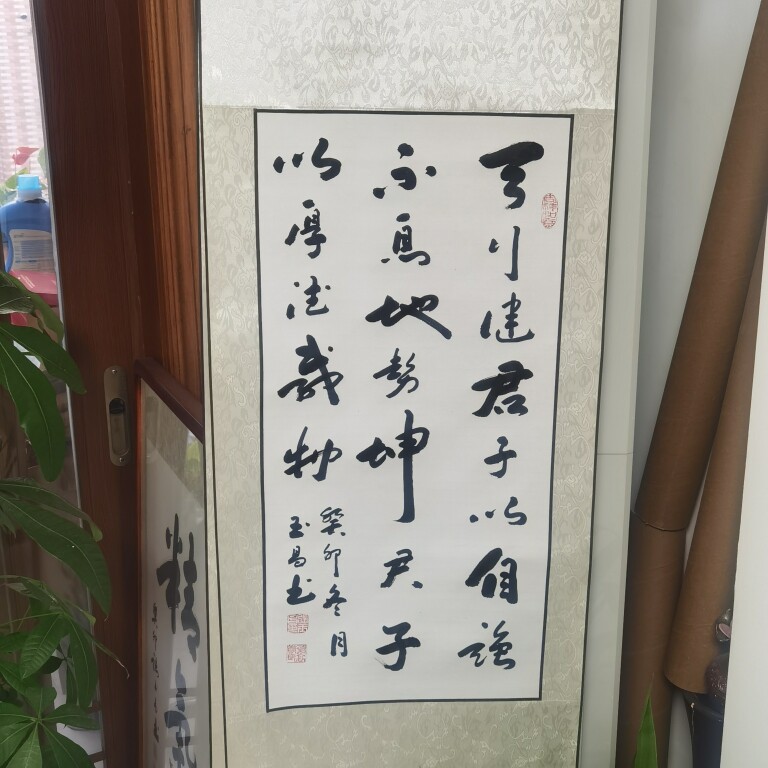 天行健君子以自強
不息地勢坤君子
以厚德載物
癸卯冬月
玉昌书
精氣